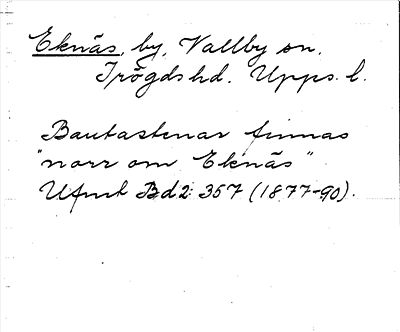 Eknäs, by, Vallby sn.
Trögds hd. Upps. l.
Bautastenar finnas
"norr om Eknäs"
Ufmt Bd 2: 357 (1877-90).